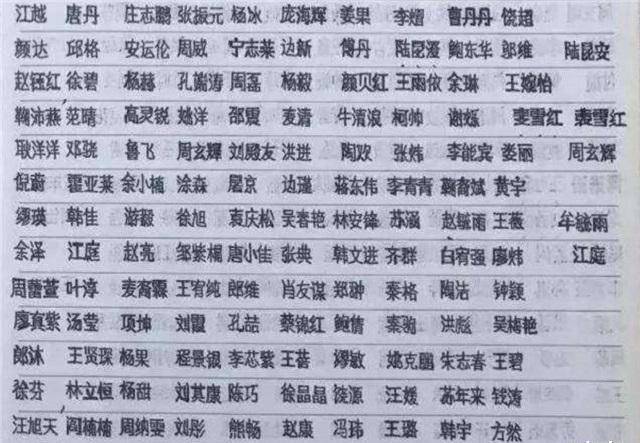 江越 唐丹 庄志鹏 张振元 杨冰 庞海辉 姜果 李熠 曹丹丹 饶超
颜达 邱格 安运伦 周威 宁志莱 边新 傅丹 陆昆滢 鲍东华 邬维 陆昆安
赵钰红 徐碧 杨赫 孔耑涛 周磊 杨毅 颜贝红 王雨依 余琳 王婉怡
鞠沛燕 范晴 高灵锐 姚洋 邵震 麦清 牛清浪 柯帅 谢烁 裴雪红 裴雪红
耿洋洋 邓骁 鲁飞 周玄辉 刘殿友 洪进 陶欢 张炜 李能宾 娄丽 周玄辉
倪蔚 霍亚莱 余小楠 涂森 屠京 边瑾 蒋东伟 李青青 鞠斋斌 黄宇
缪瑛 韩佳 游毅 徐旭 袁庆松 吴春艳 林安锋 苏涵 赵毓雨 王薇 牟毓雨
余泽 江庭 赵亮 邹紫楣 唐小佳 张典 韩文进 齐群 白宥强 廖炜 江庭
周蕾萱 叶淳 麦斋霖 王宥纯 郎维 肖友谋 郑翀 秦格 陶沽 钟颖
廖真紫 汤莹 项坤 刘霞 孔喆 蔡锦红 鲍倩 秦驹 洪彪 吴梅艳
郎沐 王贤琛 杨果 程景银 李芯紫 王苔 缪敏 姚克鹏 朱志春 王碧
徐芬 林立恒 杨甜 刘其康 陈巧 徐晶晶 饶源 汪媛 苏年来 钱涛
汪旭天 阎楠楠 周纳雯 刘彤 熊畅 赵康 冯玮 王璐 韩宇 方然